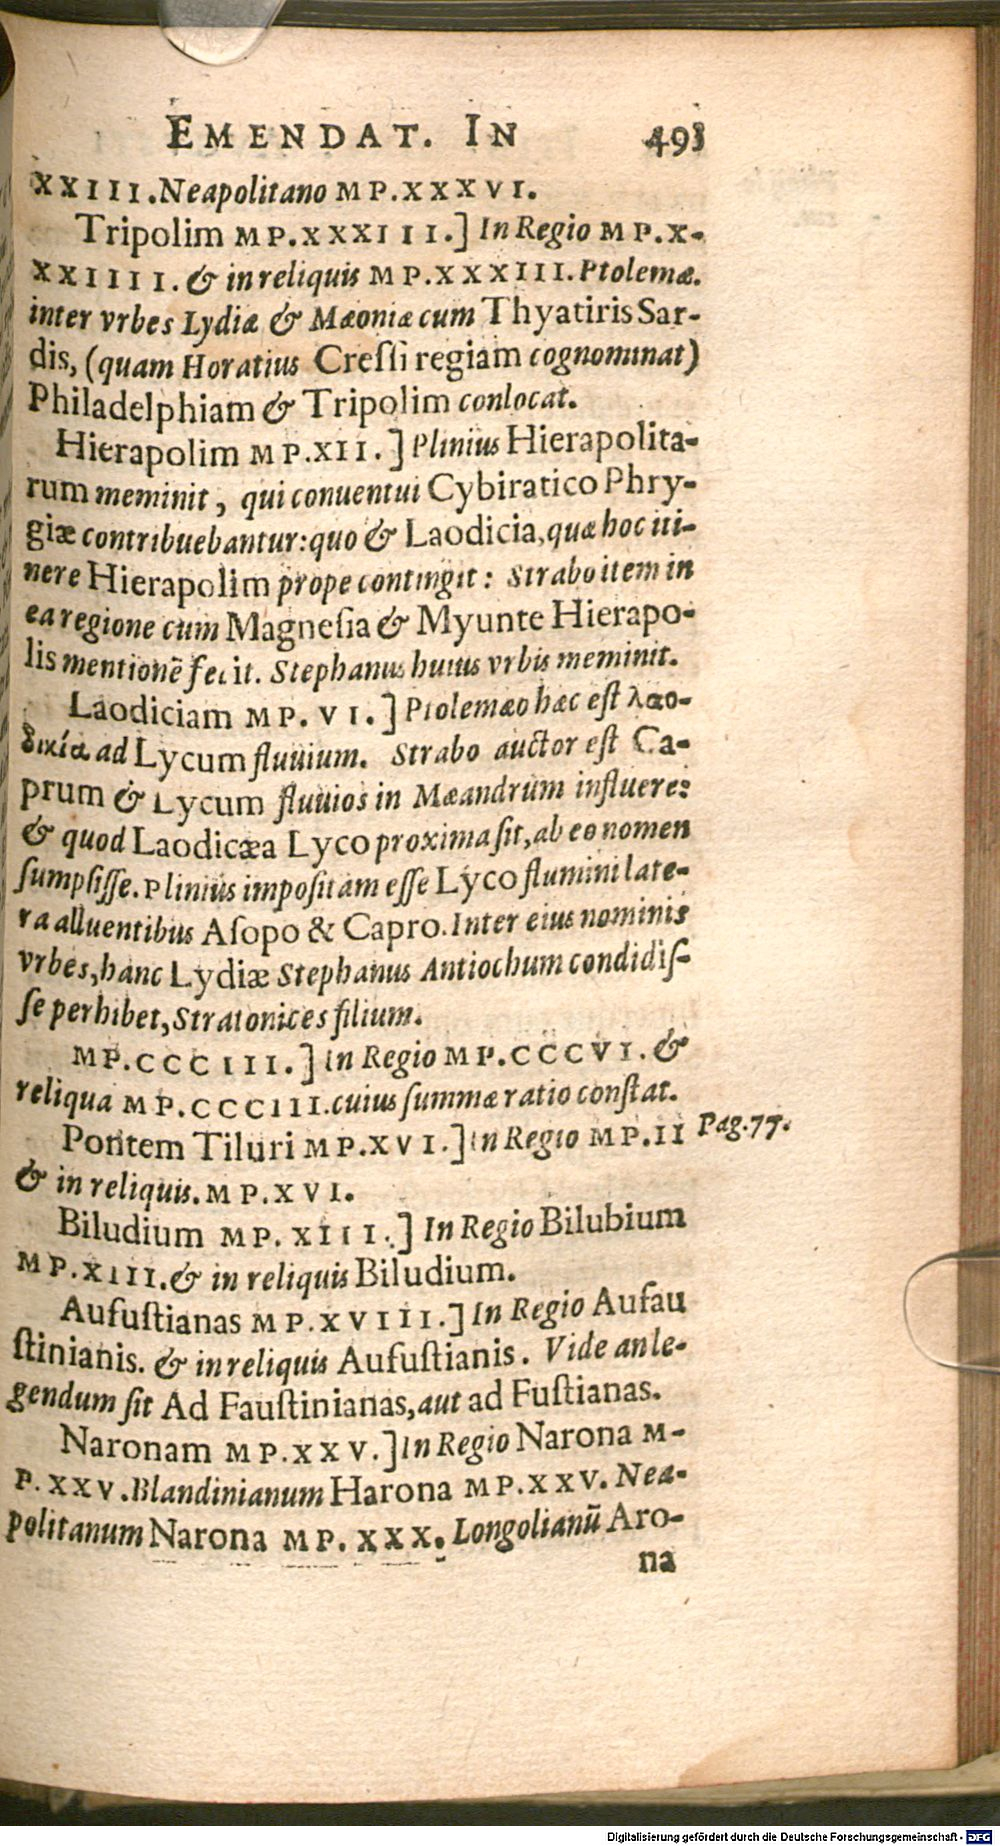 EMENDAT. IN 493
XXIII. Neapolitano MP. XXXVI.
Tripolim MP. XXXIII.] In Regio MP. X-
XXIIII. & in reliquis MP. XXXIII. Ptolemæ.
inter vrbes Lydiæ & Mæoniæ cum Thyatiris Sar-
dis, (quam Horatius Cressi regiam cognominat)
Philadelphiam & Tripolim conlocat.
Hierapolim MP. XII.] Plinius Hierapolita-
rum meminit, qui conuentui Cybiratico Phry-
giæ contribuebantur: quo & Laodicia, quæ hoc iti-
nere Hierapolim prope contingit: Strabo item in
ea regione cum Magnesia & Myunte Hierapo-
lis mentionē fecit. Stephanus huius vrbis meminit.
Laodiciam MP. VI.] Ptolemæo hæc est λαο-
δικία ad Lycum fluuium. Strabo auctor est Ca-
prum & Lycum fluuios in Mæandrum influere:
& quod Laodicæa Lyco proxima sit, ab eo nomen
sumpsisse. Plinius impositam esse Lyco flumini late-
ra alluentibus Asopo & Capro. Inter eius nominis
vrbes, hanc Lydiæ Stephanus Antiochum condidis-
se perhibet, Stratonices filium.
MP. CCCIII.] In Regio MP. CCCVI. &
reliqua MP. CCCIII. cuius summæ ratio constat.
Pontem Tiluri MP. XVI.] In Regio MP. II Pag. 77.
& in reliquis. MP. XVI.
Biludium MP. XIII.] In Regio Bilubium
MP. XIII. & in reliquis Biludium.
Aufustianas MP. XVIII.] In Regio Aufau
stinianis. & in reliquis Aufustianis. Vide an le-
gendum sit Ad Faustinianas, aut ad Fustianas.
Naronam MP. XXV.] In Regio Narona M-
P. XXV. Blandinianum Harona MP. XXV. Nea-
politanum Narona MP. XXX. Longolianū Aro-
na
Digitalisierung gefördert durch die Deutsche Forschungsgemeinschaft - DFG